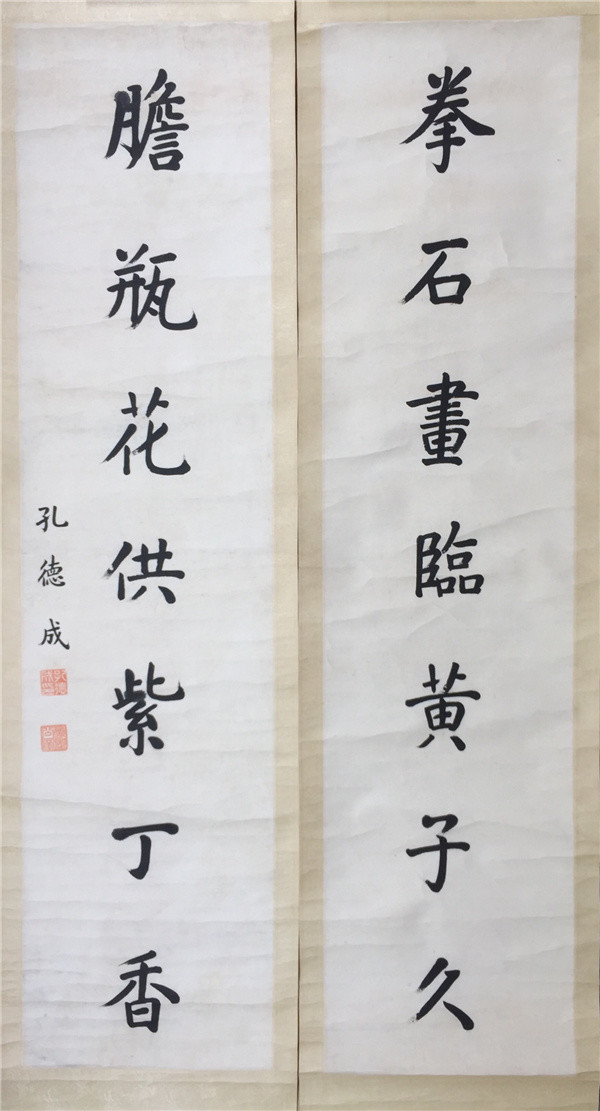 拳石畫臨黃子久
膽瓶花供紫丁香
孔德成